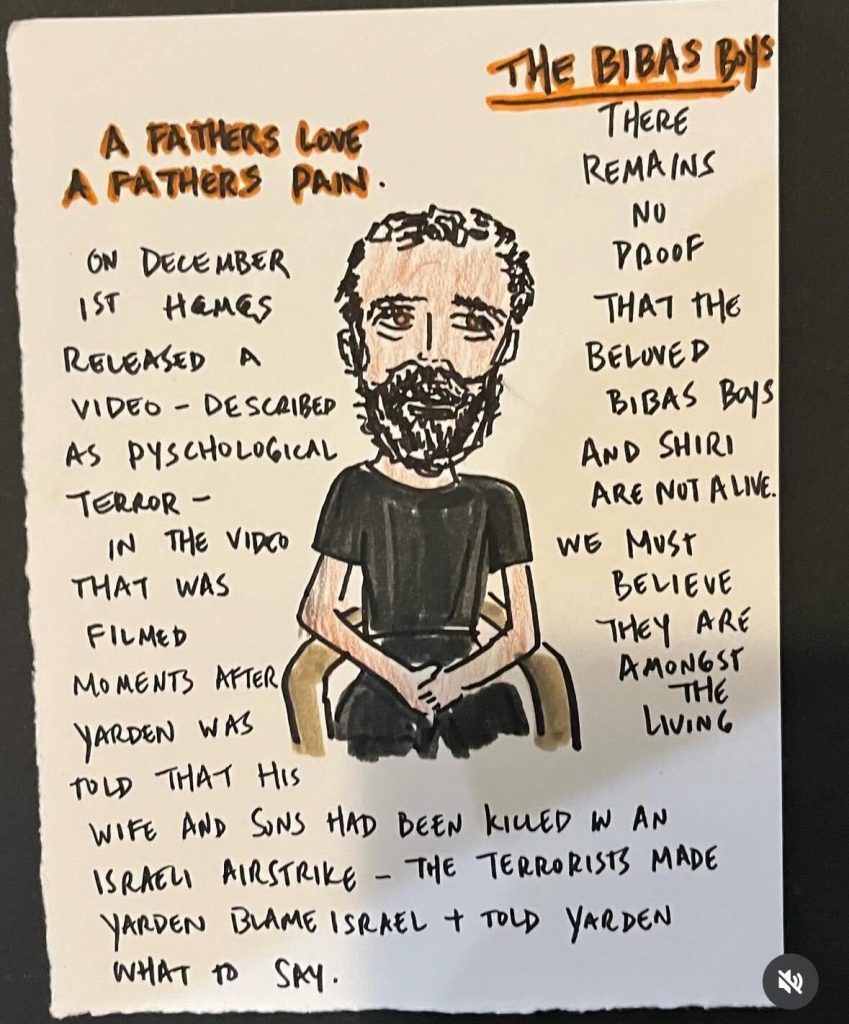 A FATHERS LOVE
A FATHERS PAIN.
ON DECEMBER
1ST HAMAS
RELEASED A
VIDEO - DESCRIBED
AS PYSCHOLOGICAL
TERROR -
IN THE VIDEO
THAT WAS
FILMED
MOMENTS AFTER
YARDEN WAS
TOLD THAT HIS
WIFE AND SONS HAD BEEN KILLED IN AN
ISRAELI AIRSTRIKE - THE TERRORISTS MADE
YARDEN BLAME ISRAEL + TOLD YARDEN
WHAT TO SAY.
THE BIBAS BOYS
THERE
REMAINS
NO
PROOF
THAT THE
BELOVED
BIBAS BOYS
AND SHIRI
ARE NOT ALIVE.
WE MUST
BELIEVE
THEY ARE
AMONGST
THE
LIVING